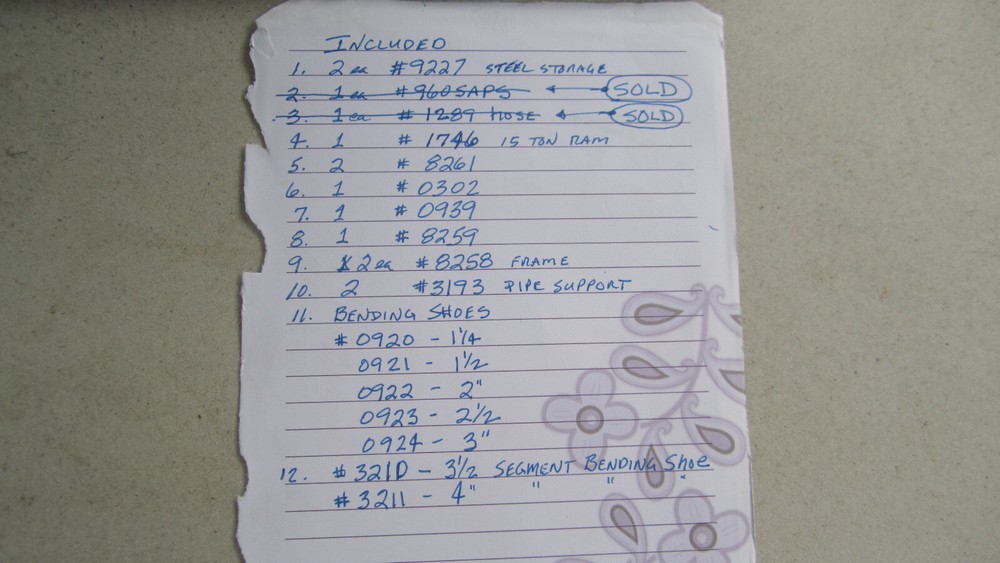 INCLUDED
1. 2 ea #9227 STEEL STORAGE
2. 1 ea #960SAPS SOLD
3. 1 ea #1289 HOSE SOLD
4. 1 #1746 15 TON RAM
5. 2 #8261
6. 1 #0302
7. 1 #0939
8. 1 #8259
9. 2 ea #8258 FRAME
10. 2 #3193 PIPE SUPPORT
11. BENDING SHOES
#0920 - 1 1/4
0921 - 1 1/2
0922 - 2"
0923 - 2 1/2
0924 - 3"
12. #3210 - 3 1/2 SEGMENT BENDING Shoe
#3211 - 4" " " "